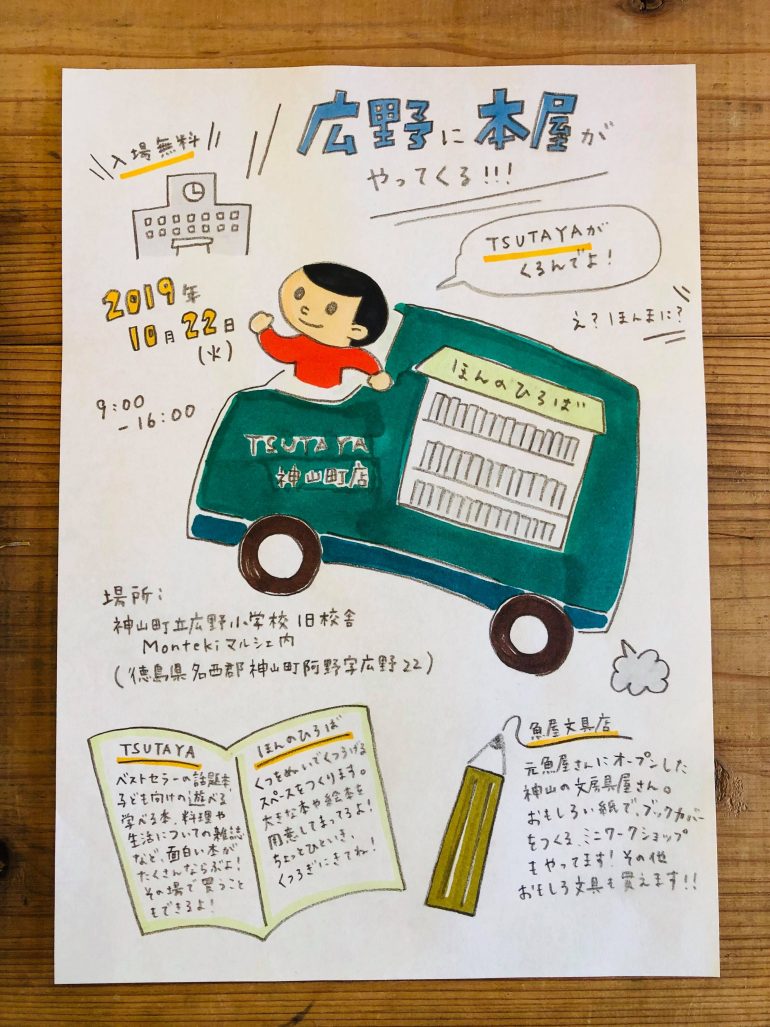 広野に本屋が
やってくる!!!
入場無料
TSUTAYAが
くるんでよ!
え?ほんまに?
2019年
10月22日
(火)
9:00
-16:00
ほんのひろば
TSUTAYA
神山町店
場所:
神山町立広野小学校 旧校舎
Montekiマルシェ内
(徳島県名西郡神山町阿野字広野22)
TSUTAYA
ベストセラーの話題本、
子ども向けの遊べる
学べる本、料理や
生活についての雑誌
など、面白い本が
たくさんならぶよ!
その場で買うこと
もできるよ!
ほんのひろば
くつをぬいでくつろげる
スペースをつくります。
大きな本や絵本を
用意してまってるよ!
ちょっとひといき、
くつろぎにきてね!
魚屋文具店
元魚屋さんにオープンした
神山の文房具屋さん。
おもしろい紙で、ブックカバー
をつくる、ミニワークショップ
もやってます!その他
おもしろ文具も買えます!!